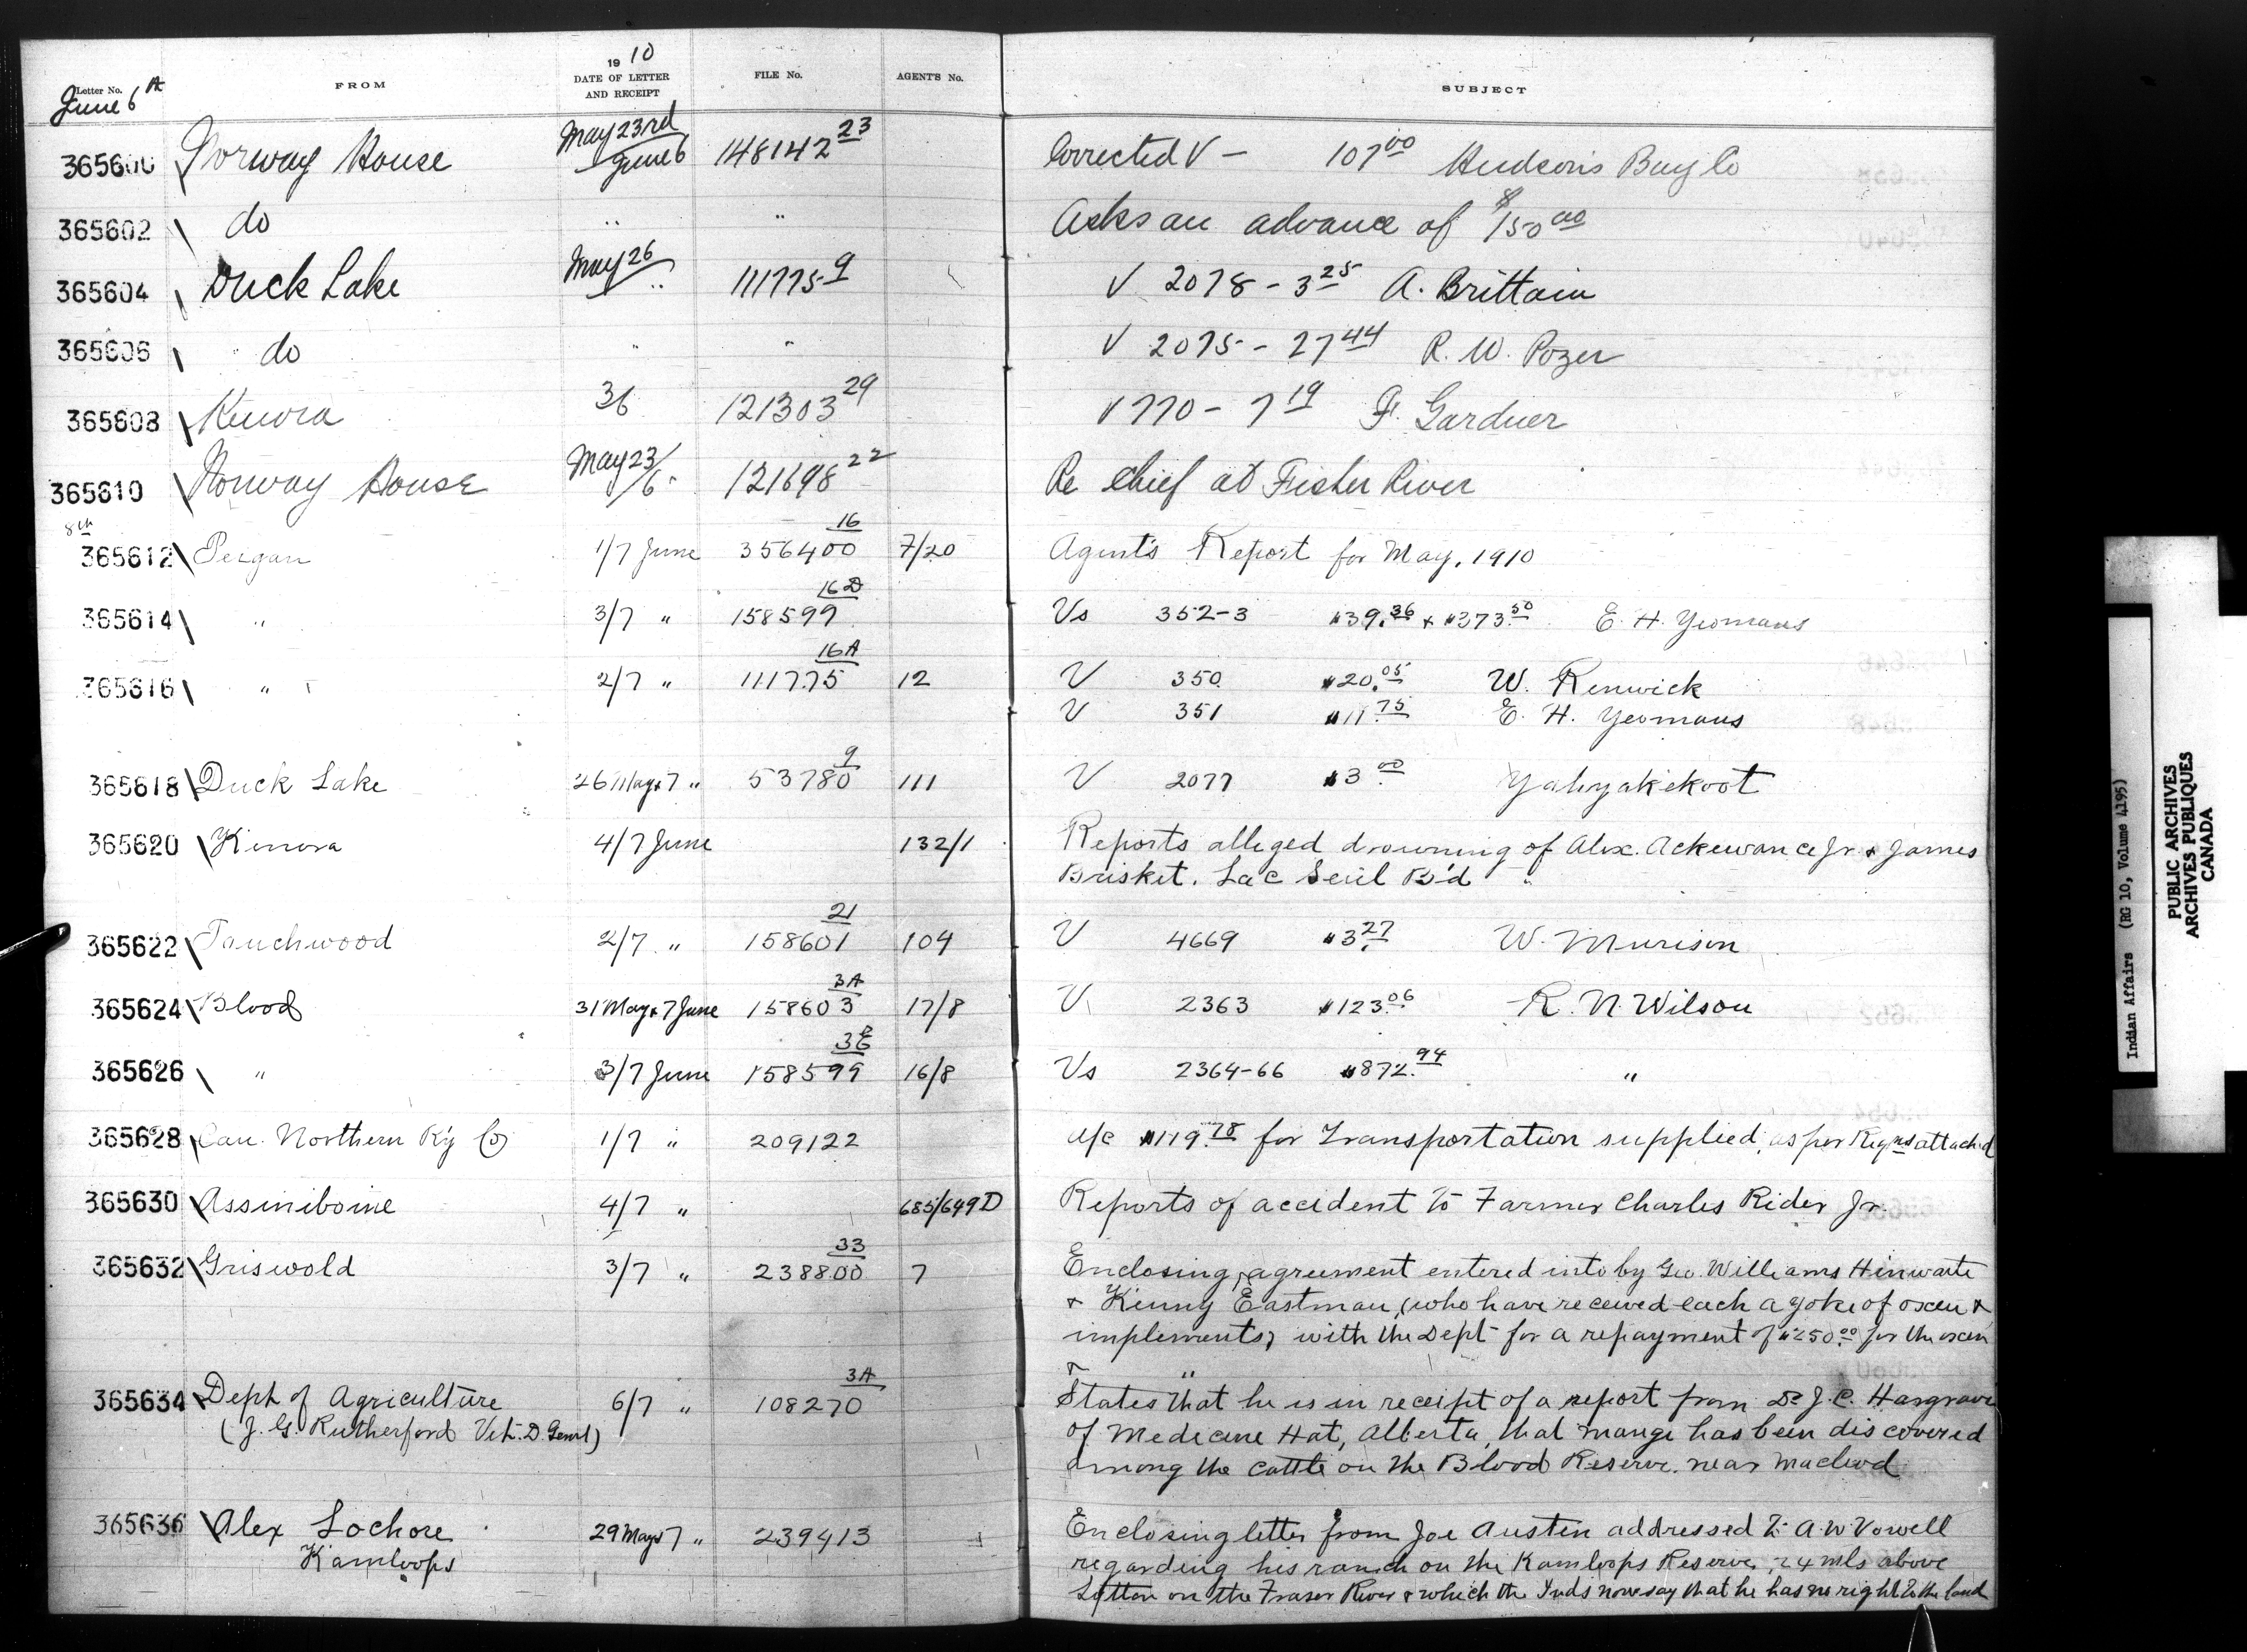 1910
Letter No. FROM DATE OF LETTER AND RECEIPT FILE No. AGENT'S No. SUBJECT
June 6th
365600 Norway House May 23rd June 6 148142 23 Corrected V — 107 00 Hudson's Bay Co
365602 do " " Asks an advance of $150 00
365604 Duck Lake May 26 " 111775 9 V 2078 - 3 25 A. Brittain
365606 do " " V 2075 - 27 44 R. W. Pozer
365608 Kenora 3/6 121303 29 V 770 - 7 19 F. Gardner
365610 Norway House May 23/6 121698 22 Re Chief at Fisher River
8th
365612 Peigan 1/7 June 356400 16 7/20 Agent's Report for May, 1910
365614 " 3/7 " 158599 16D Vs 352-3 $39.36 + $373.50 E. H. Yeomans
365616 " 2/7 " 111775 16A 12 V 350 $20.05 W. Renwick
V 351 $11.75 E. H. Yeomans
365618 Duck Lake 26 May & 7 " 53780 9 111 V 2077 $3.00 Yahyakekoot
365620 Kenora 4/7 June 132/1 Reports alleged drowning of Alex. Ackewance Jr. & James
Brisket. Lac Seul B'd
365622 Touchwood 2/7 " 158601 21 104 V 4669 $3.27 W. Murison
365624 Blood 31 May & 7 June 158603 3A 17/8 V 2363 $123.06 R. N. Wilson
365626 " 3/7 June 158599 16/8 Vs 2364-66 $872.94 "
365628 Can. Northern Ry Co 1/7 " 209122 A/c $119.78 for Transportation supplied, as per Reqns attached
365630 Assiniboine 4/7 " 685/649D Reports of accident to Farmer Charles Rider Jr.
365632 Griswold 3/7 " 238800 33 7 Enclosing agreement entered into by Geo. Williams Hinwaste
& Kinny Eastman, (who have received each a yoke of oxen &
implements) with the Dept for a repayment of $250.00 for the oxen
365634 Dept of Agriculture 6/7 " 108270 3A States that he is in receipt of a report from Dr J. C. Hargrave
(J. G. Rutherford Vet. D. Genrl) of Medecine Hat, Alberta, that mange has been discovered
among the cattle on the Blood Reserve, near Macleod
365636 Alex Lochore 29 May & 7 " 239413 Enclosing letter from Joe Austin addressed to A. W. Vowell
Kamloops regarding his ranch on the Kamloops Reserve, 24 mls above
Lytton on the Fraser River & which the Inds now say that he has no right to the land
Indian Affairs (RG 10, Volume 4195)
PUBLIC ARCHIVES
ARCHIVES PUBLIQUES
CANADA